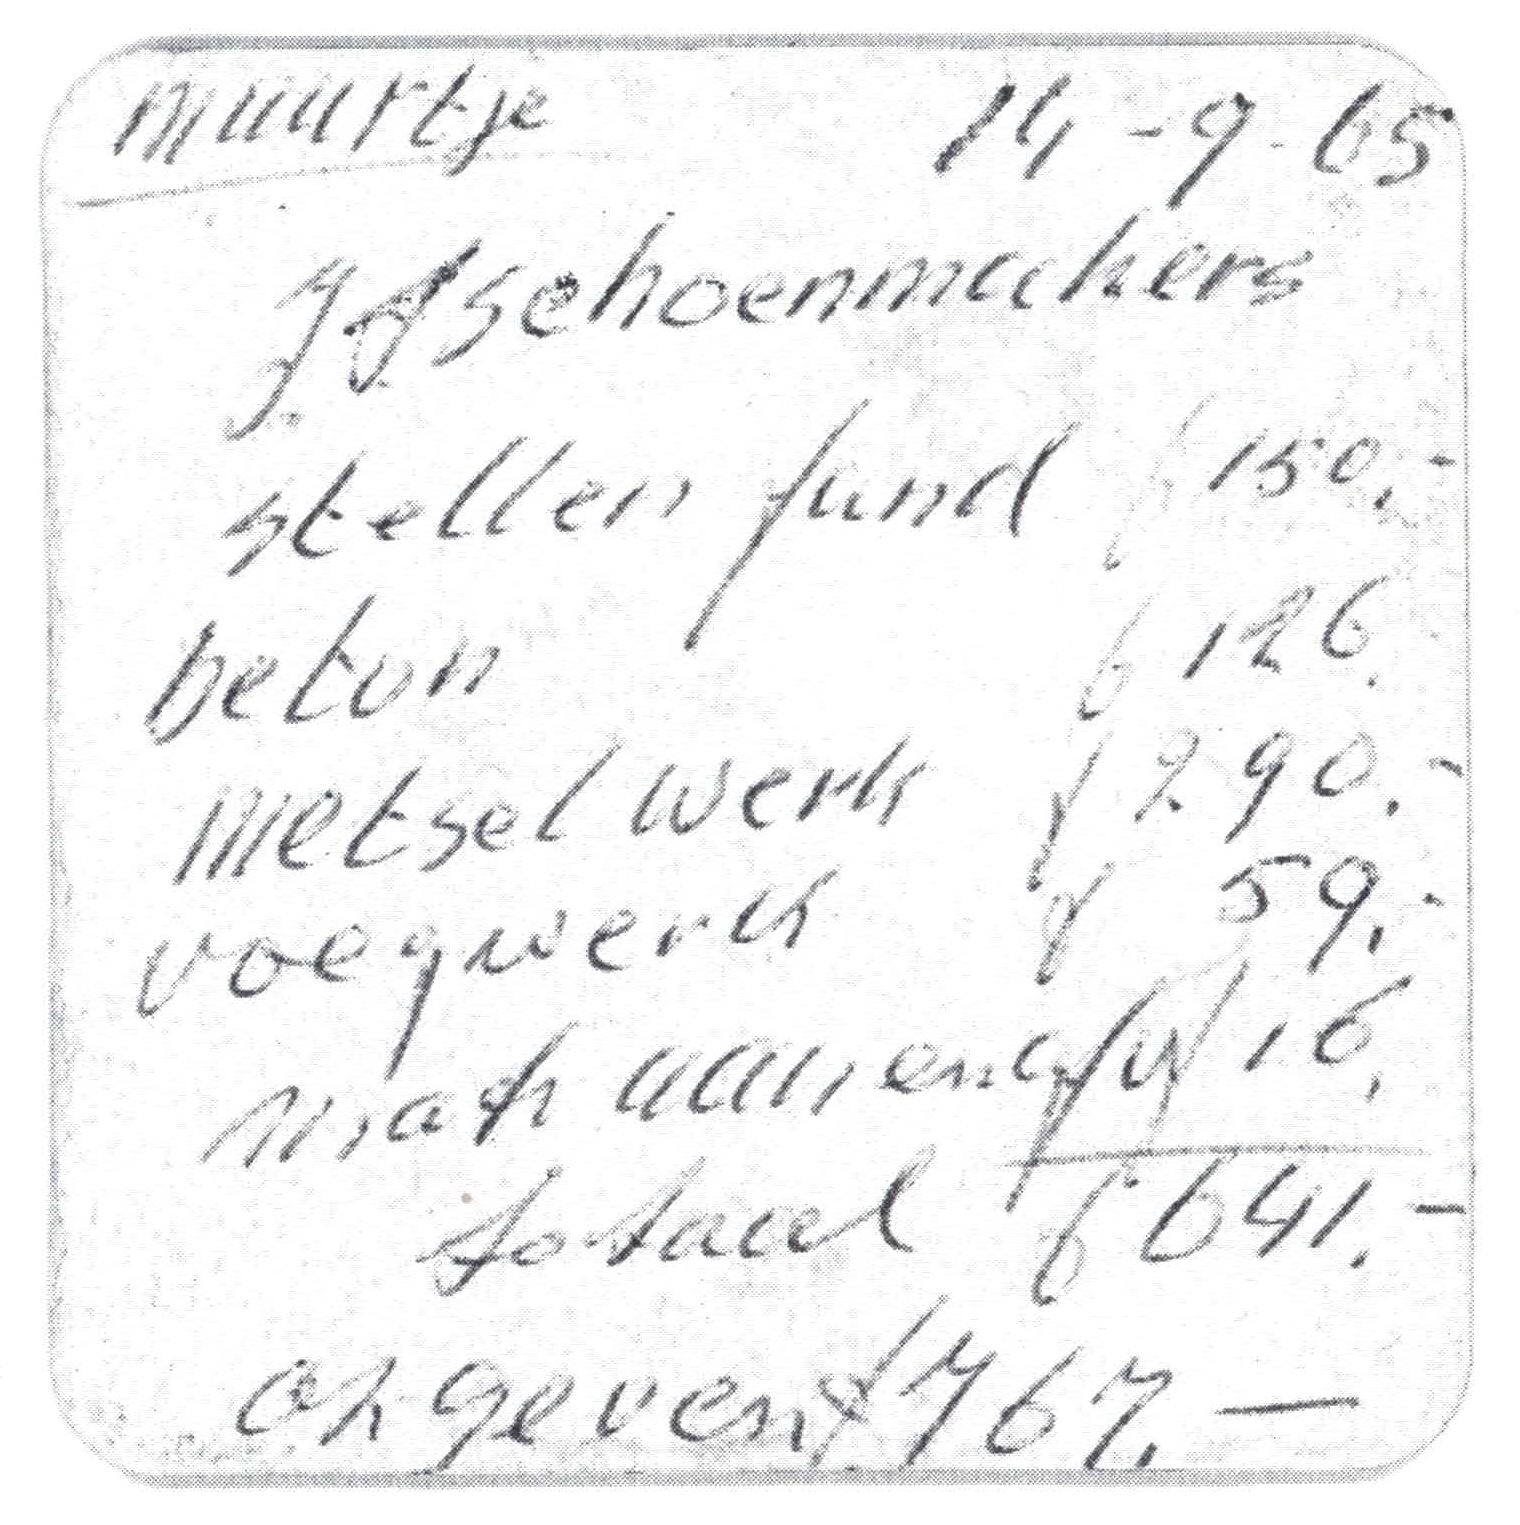 muurtje 14-9-65
JJ Schoenmakers
stellen fund f 150,-
beton f 126.-
metselwerk f 290.-
voegwerk f 59.-
f 16,
totaal f 641.-
opgeven f 767.—